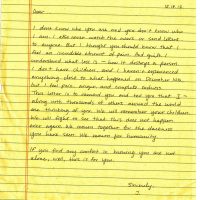 12.18.12
Dear
I dont know who you are and you don't know who
I am. I also never watch the news or send letters
to anyone. But I thought you should know that I
feel an incredible amount of pain. And guilt. I
understand what loss is — how it destroys a person.
I don't have children, and I haven't experienced
anything close to what happened on December 14th,
but I feel pain, anger, and complete sadness.
This letter is to remind you and tell you that I —
along with thousands of others around the world
are thinking of you. We will remember your children.
We will fight so see that this does not happen
ever again. We mourn together for the darkness
you have seen. We mourn for humanity.
If you find any comfort in knowing you are not
alone, well, this is for you.
Sincerely,